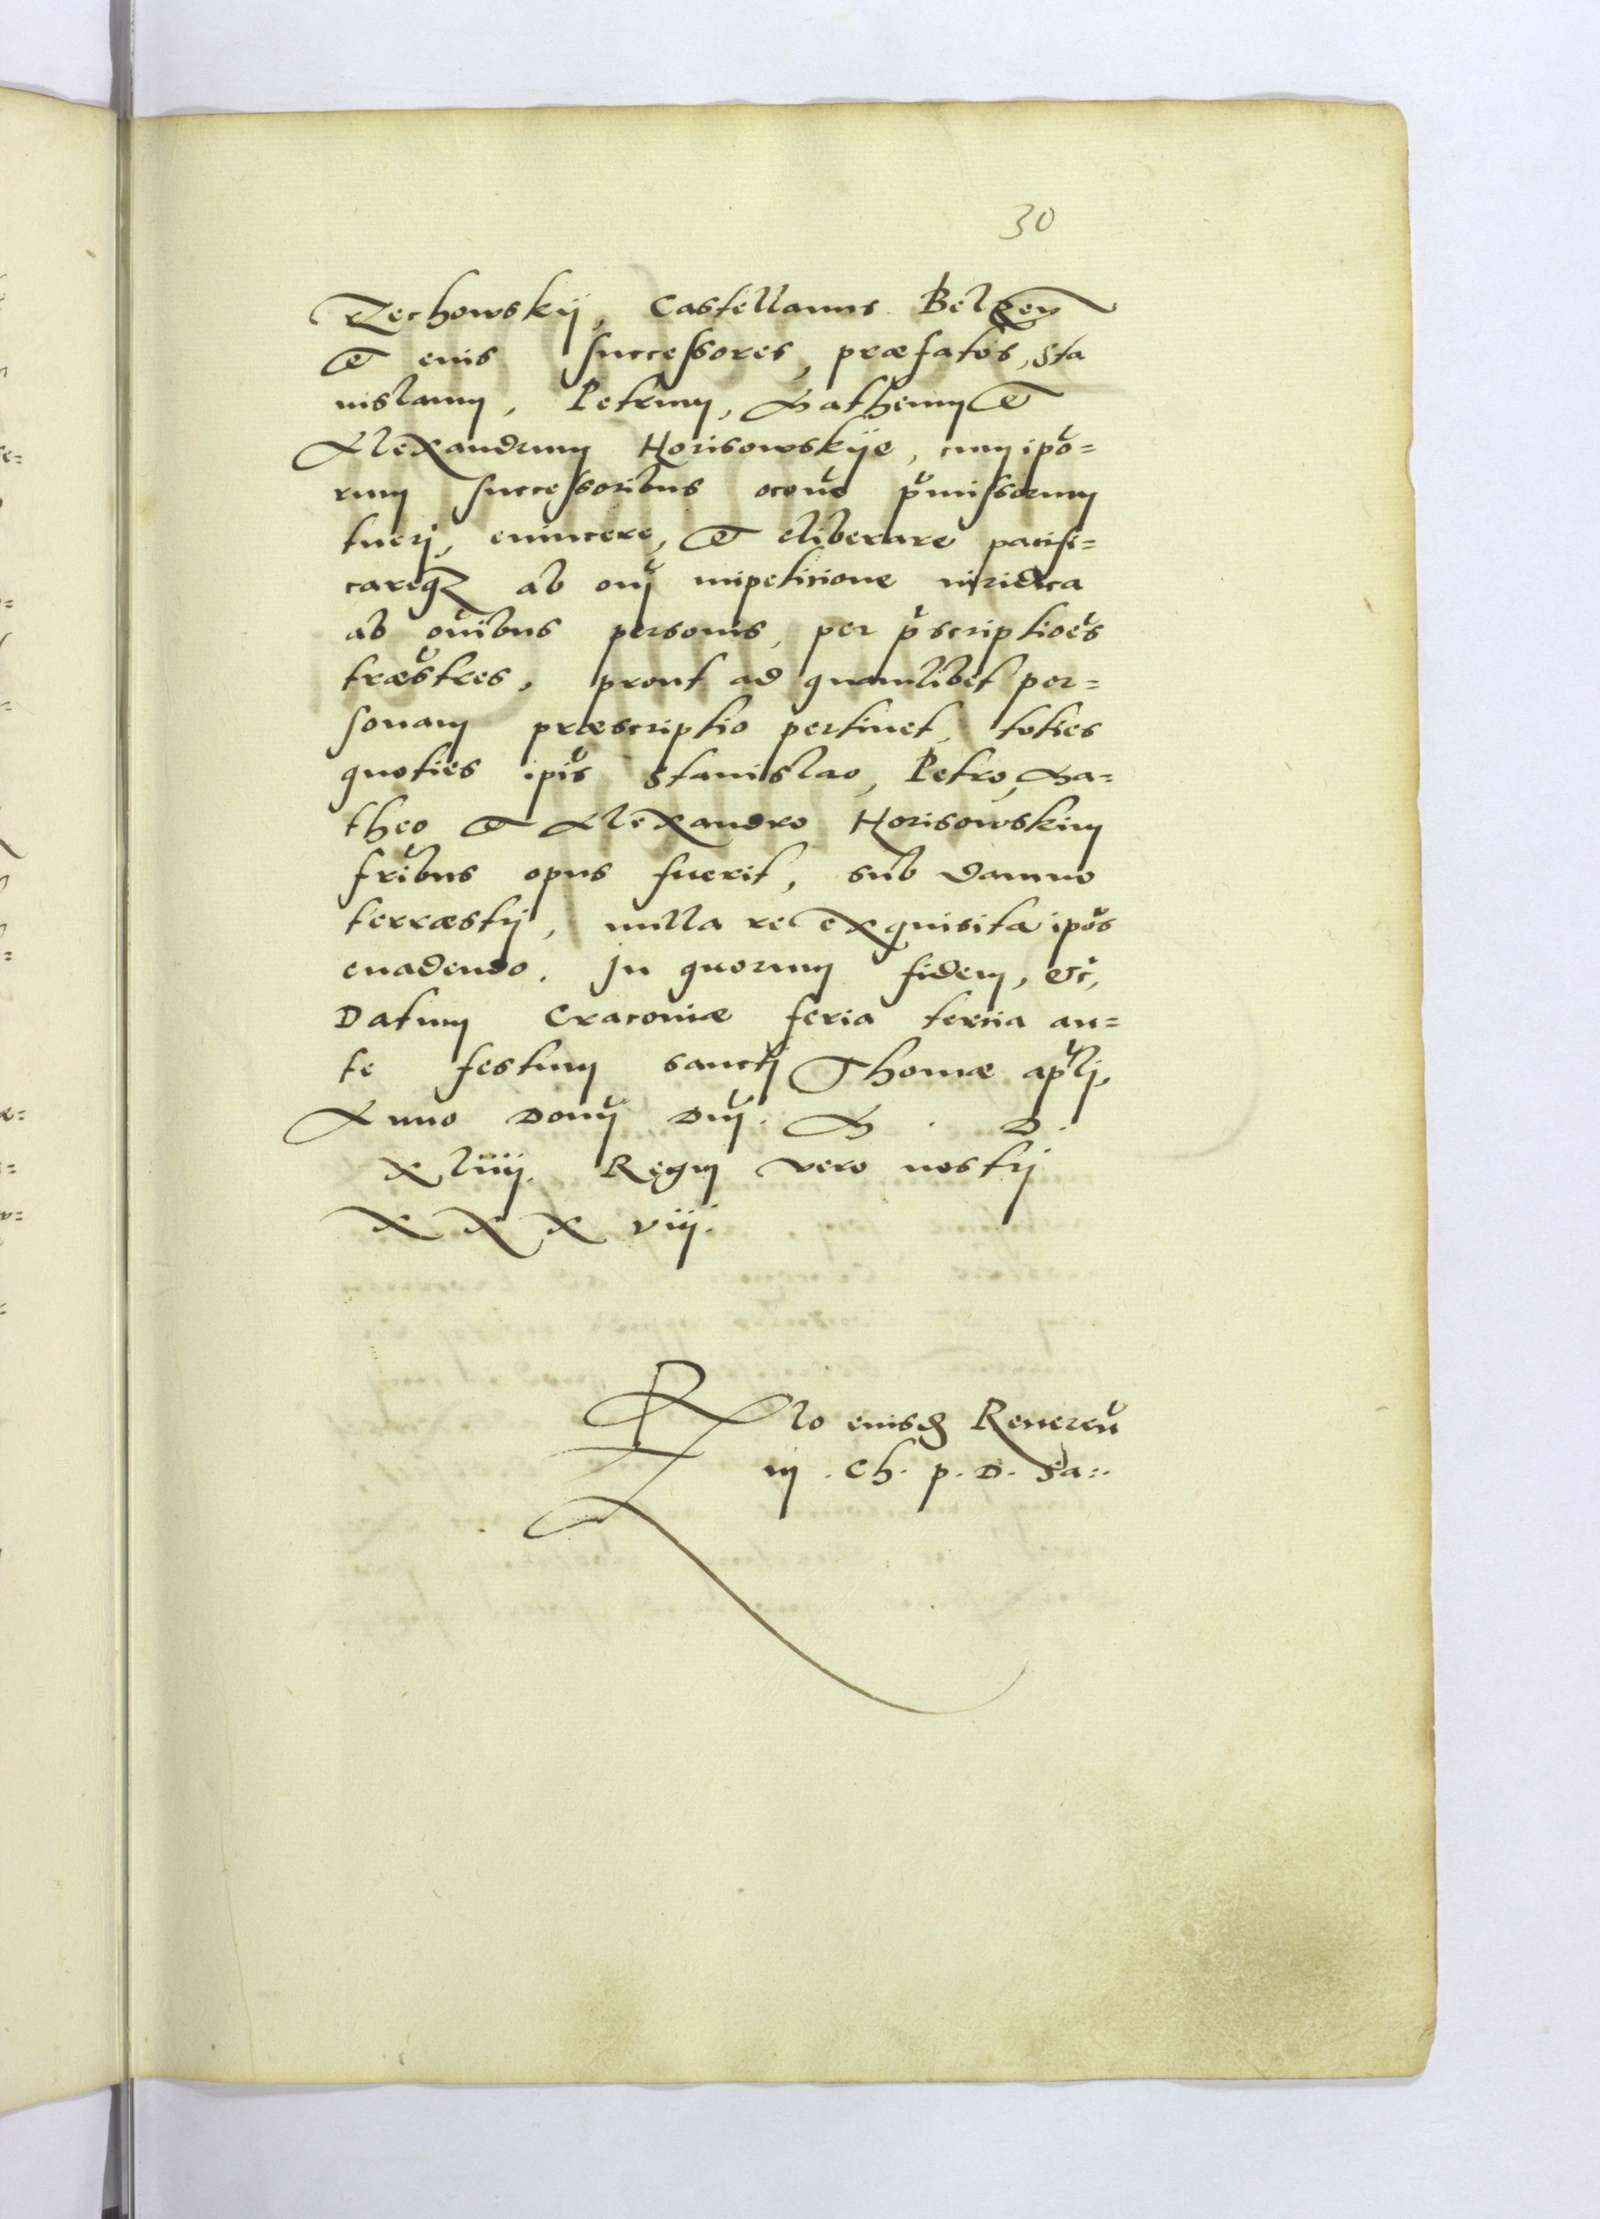 30
Rzechowskij, Castellanus Belzeñ
et euis successores, præfatos, Sta
nislaum, Petrum, Matheum et
Alexandrum Horisowskije, cum ipo=
rum successoribus pmissorum
tuerj, euincere, et eliberare pacifi=
careqz ab omj impeticione iuridica
ab oibus personis, per pscriptioes
træstres, prout ad quamlibet per=
sonam præscriptio pertinet, toties
quoties ipis Stanislao, Petro, Ma=
theo et Alexandro Horisowskim
fribus opus fuerit, sub damno
terræstrj, nulla re exquisita ipos
euadendo. In quorum fidem, etc,
Datum Cracouiæ feria tercia an=
te festum sanctj Thomæ aplj,
Anno Domj Dnj. M. D.
xliiij. Regnj vero nostrj
x x x viij.
Rlo eiusd Reueren
m. Ch. p. D. Sa:.